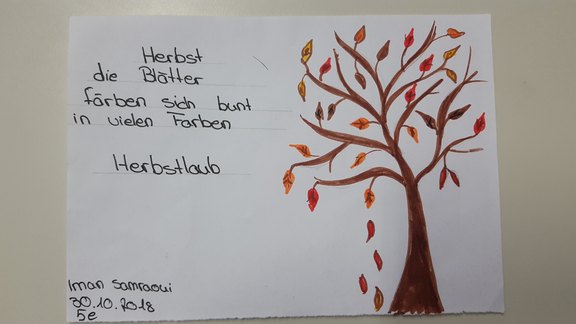 Herbst
die Blätter
färben sich bunt
in vielen Farben
Herbstlaub
Iman Samraoui
30.10.2018
5e